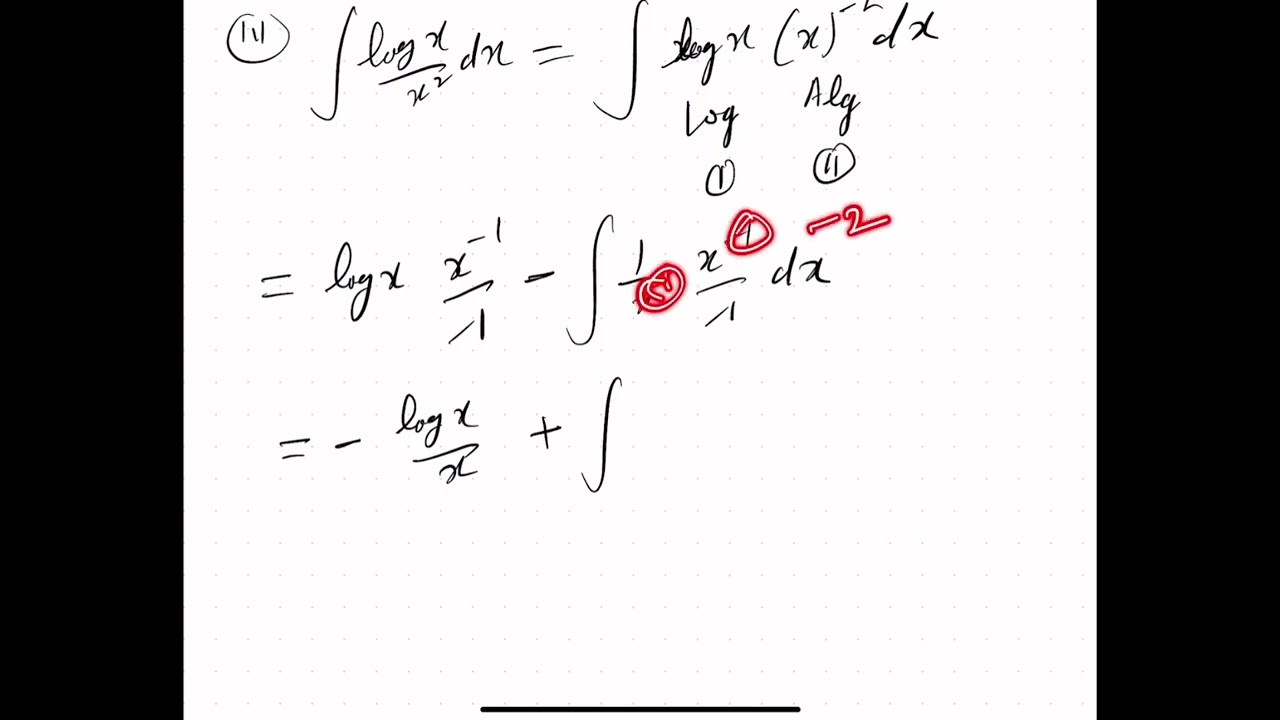 (iii) ∫ log x / x² dx = ∫ log x (x)⁻² dx
Log Alg
(I) (II)
= log x x⁻¹/-1 - ∫ 1/x x⁻¹/-1 dx -2
= - log x / x + ∫